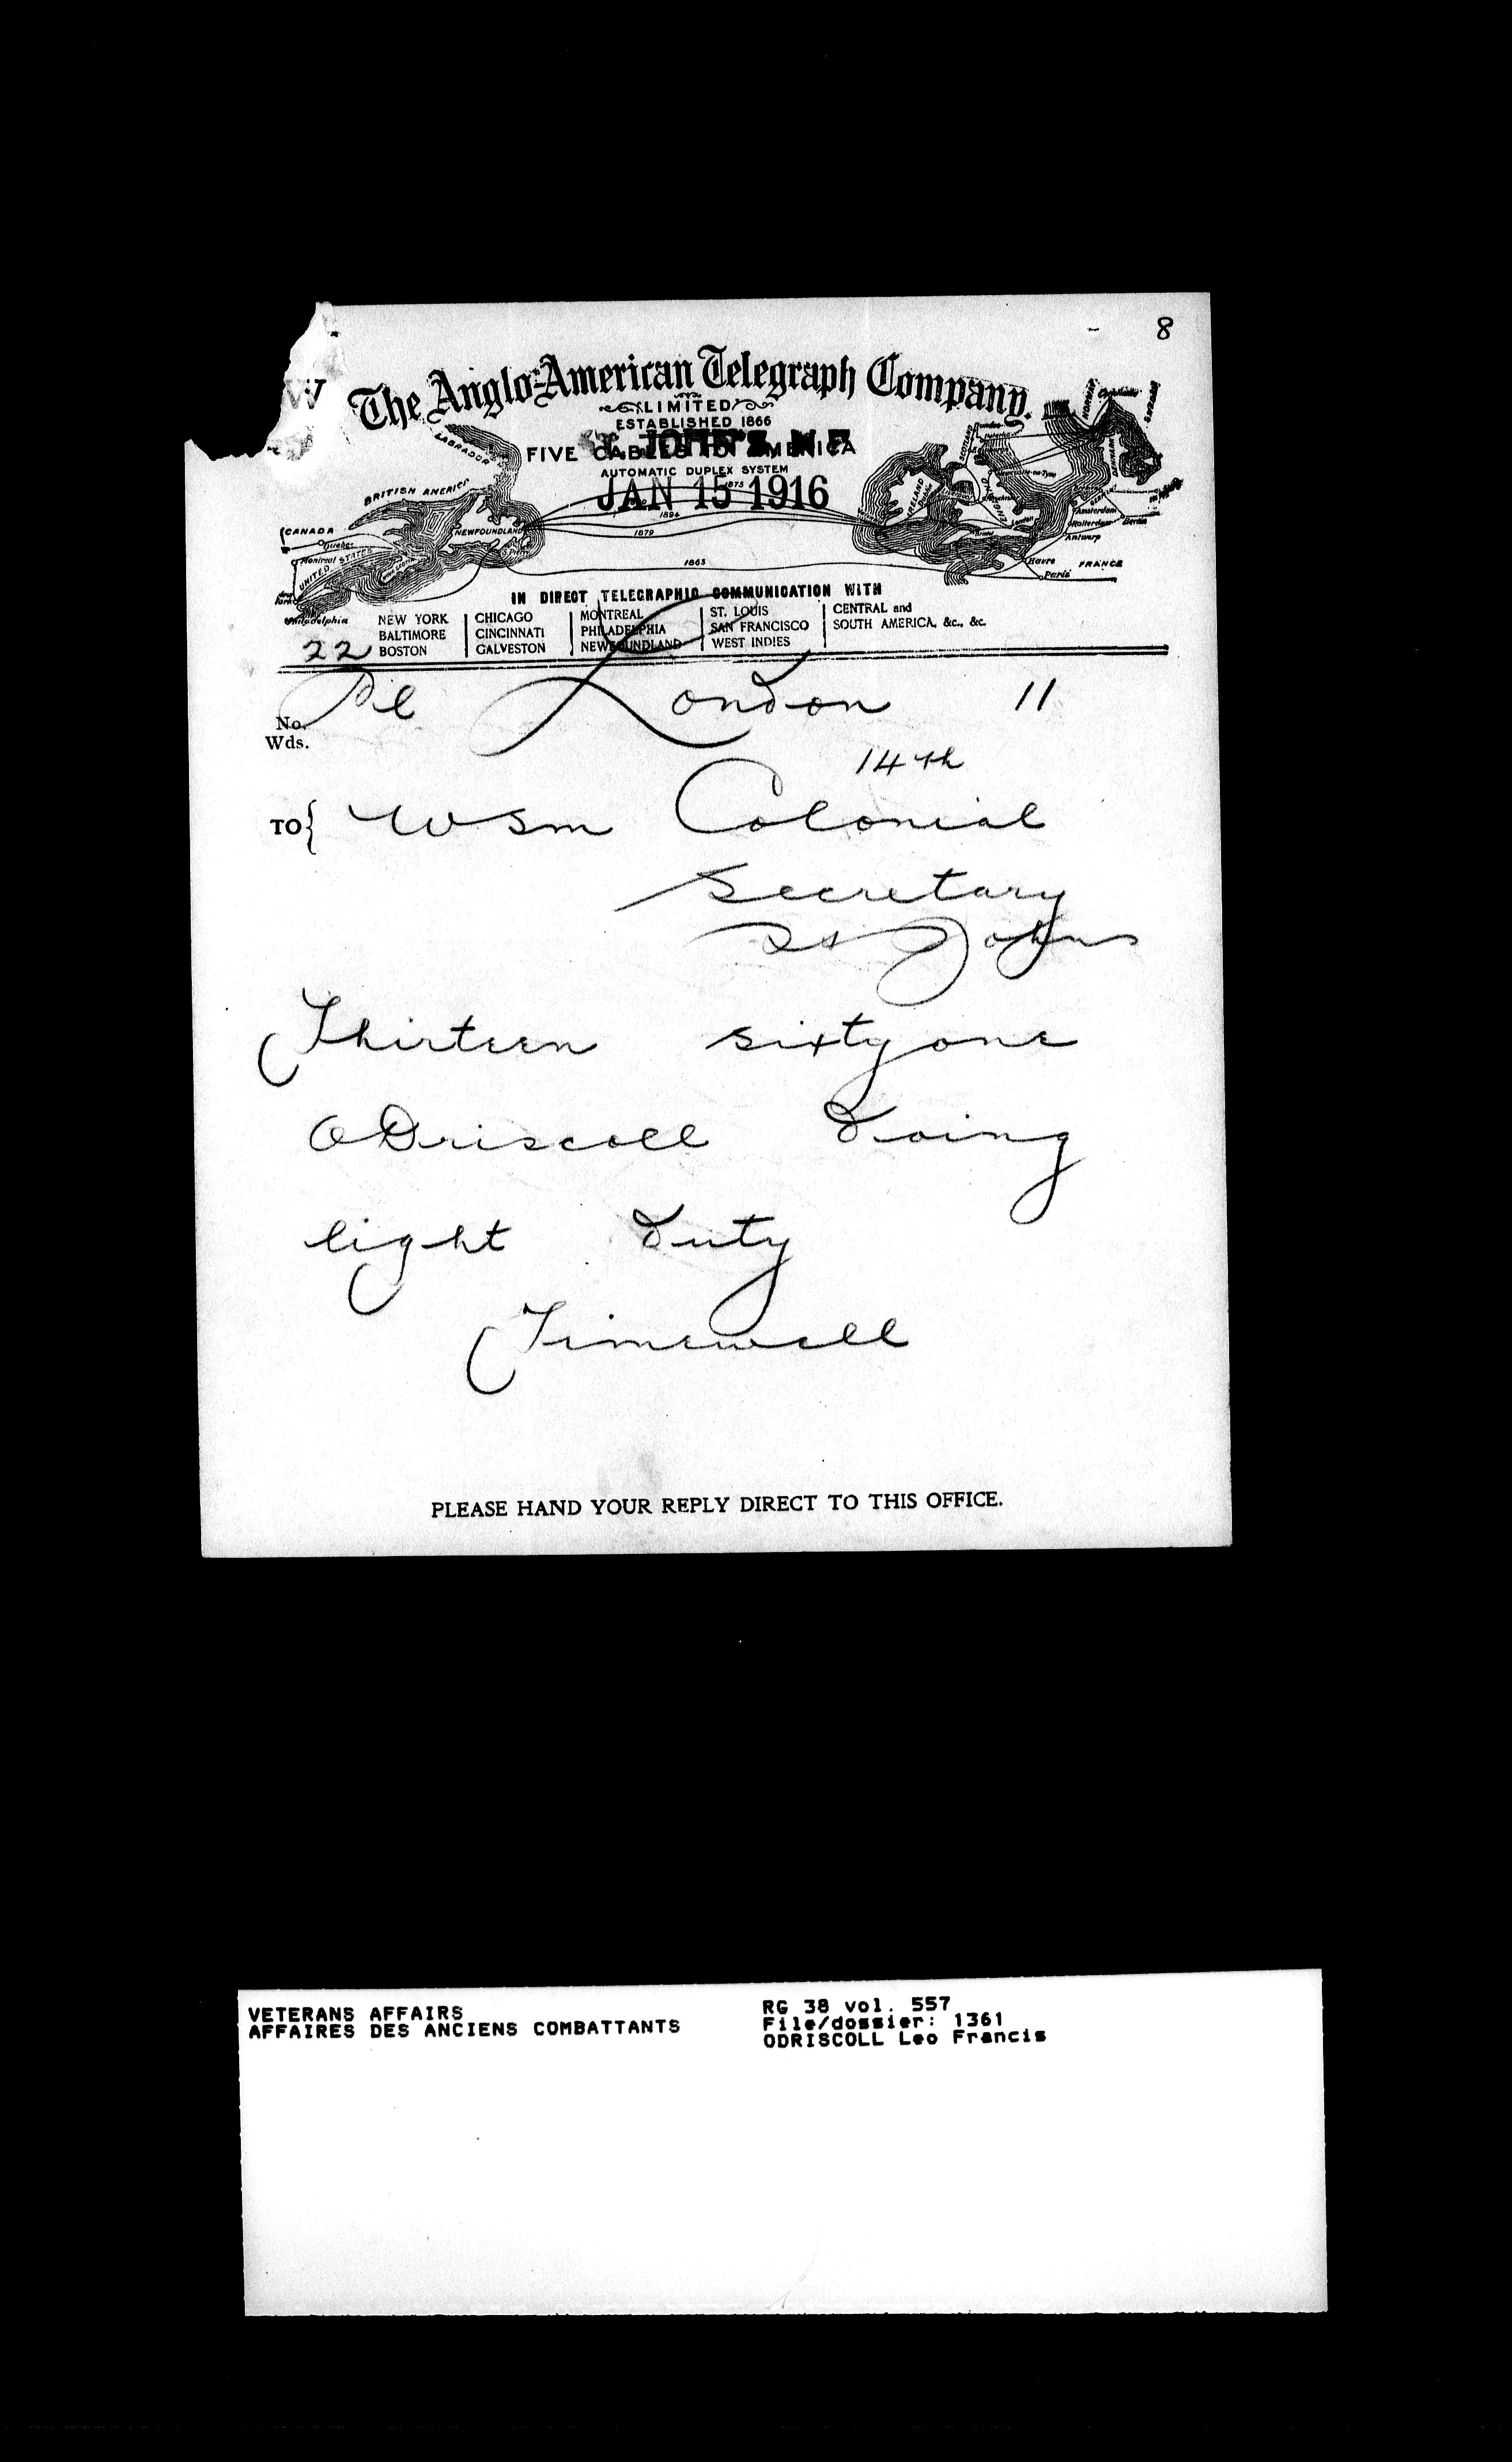 8
The Anglo-American Telegraph Company.
LIMITED
ESTABLISHED 1866
FIVE CABLES TO AMERICA
ST. JOHN'S. N F
AUTOMATIC DUPLEX SYSTEM
JAN 15 1916
LABRADOR
BRITISH AMERICA
CANADA
Quebec
Montreal
UNITED STATES
Philadelphia
NEWFOUNDLAND
1894
1879
1865
IRELAND
Dublin
London
Newcastle-on-Tyne
Amsterdam
Rotterdam
Berlin
Antwerp
Havre
FRANCE
Paris
NORWAY
DENMARK
IN DIRECT TELEGRAPHIC COMMUNICATION WITH
NEW YORK CHICAGO MONTREAL ST. LOUIS CENTRAL and
BALTIMORE CINCINNATI PHILADELPHIA SAN FRANCISCO SOUTH AMERICA, &c., &c.
22 BOSTON GALVESTON NEWFOUNDLAND WEST INDIES
No. London 11
Wds.
14th
TO Wsm Colonial
Secretary
St Johns
Thirteen sixtyone
ODriscoll doing
light duty
Timewell
PLEASE HAND YOUR REPLY DIRECT TO THIS OFFICE.
VETERANS AFFAIRS RG 38 vol. 557
AFFAIRES DES ANCIENS COMBATTANTS File/dossier: 1361
ODRISCOLL Leo Francis